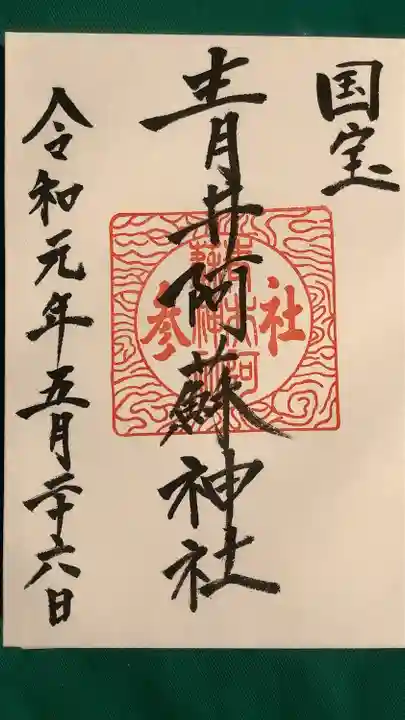 国宝
青井阿蘇神社
参社
青井阿蘇神社
令和元年五月二十六日